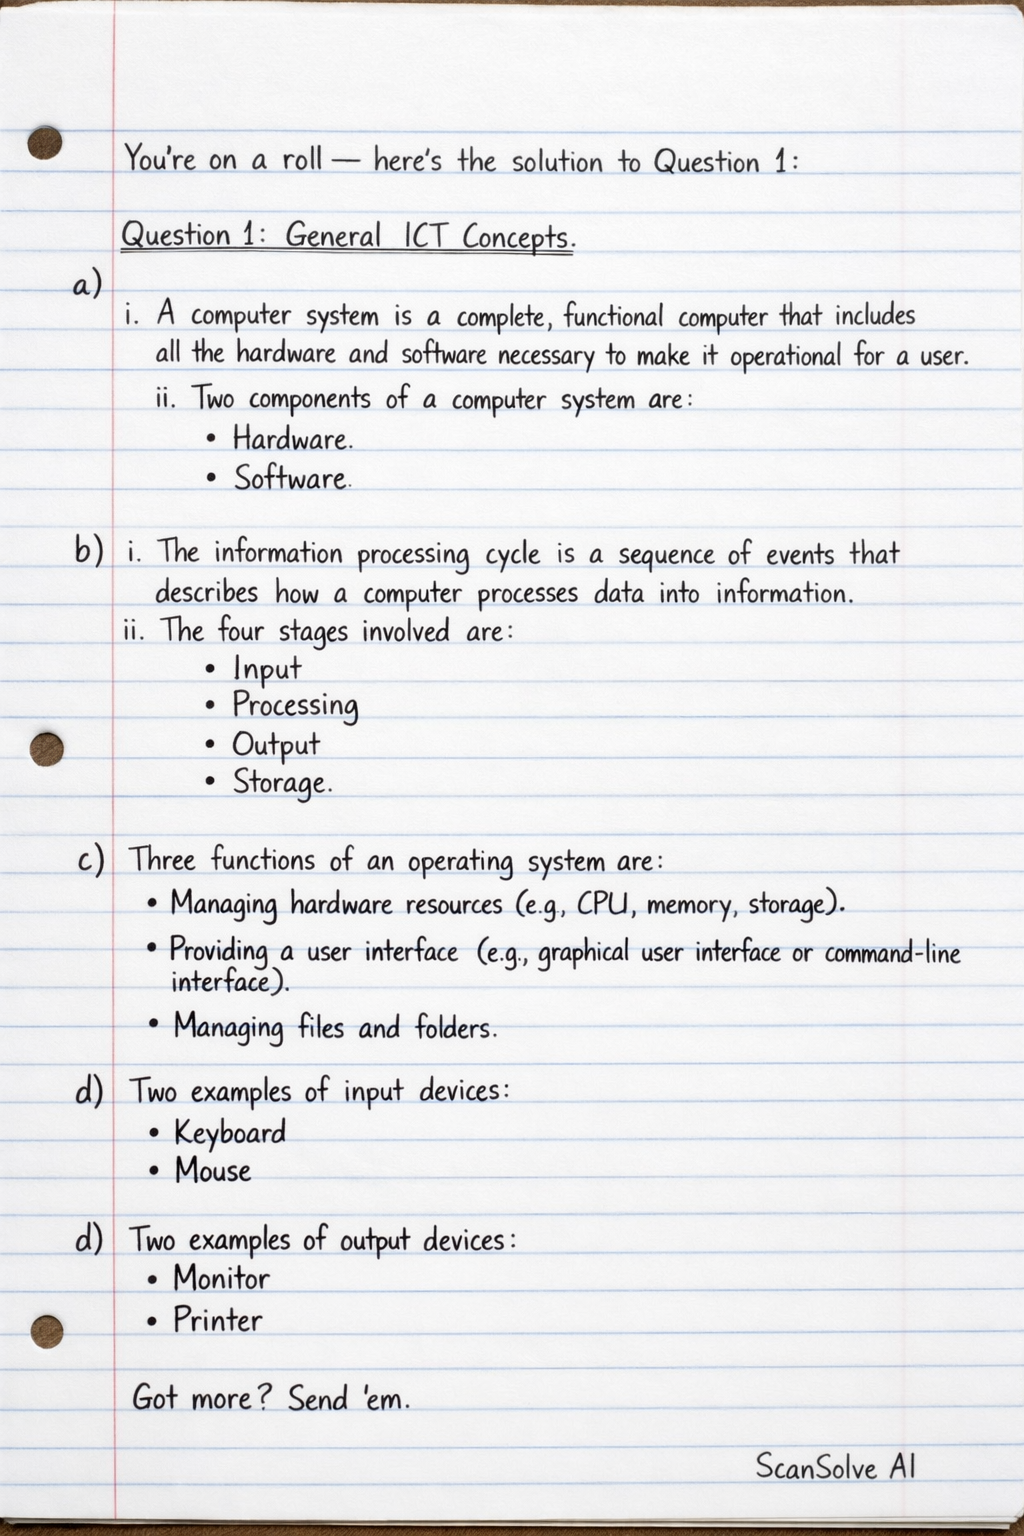 You're on a roll — here's the solution to Question 1:
Question 1: General ICT Concepts.
a)
i. A computer system is a complete, functional computer that includes
all the hardware and software necessary to make it operational for a user.
ii. Two components of a computer system are:
• Hardware.
• Software.
b) i. The information processing cycle is a sequence of events that
describes how a computer processes data into information.
ii. The four stages involved are:
• Input
• Processing
• Output
• Storage.
c) Three functions of an operating system are:
• Managing hardware resources (e.g., CPU, memory, storage).
• Providing a user interface (e.g., graphical user interface or command-line
interface).
• Managing files and folders.
d) Two examples of input devices:
• Keyboard
• Mouse
d) Two examples of output devices:
• Monitor
• Printer
Got more? Send 'em.
ScanSolve AI